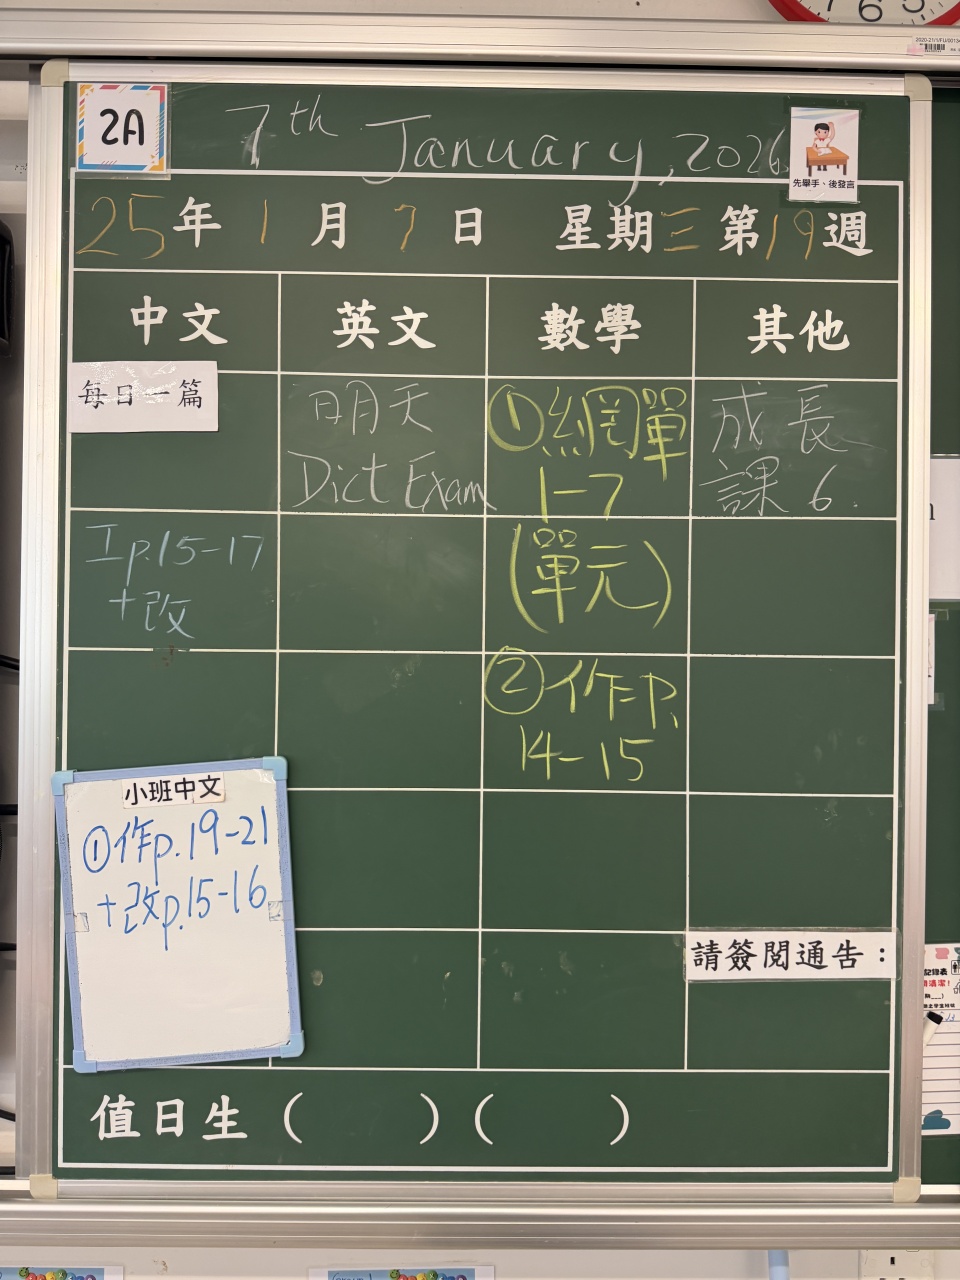 2A
7th January, 2026
先舉手、後發言
25年1月7日 星期三第19週
中文 英文 數學 其他
每日一篇
明天
Dict Exam
①網單
1-7
(單元)
②作p.
14-15
成長
課6.
工p.15-17
+改
小班中文
①作p.19-21
+改p.15-16
請簽閱通告：
值日生( )( )